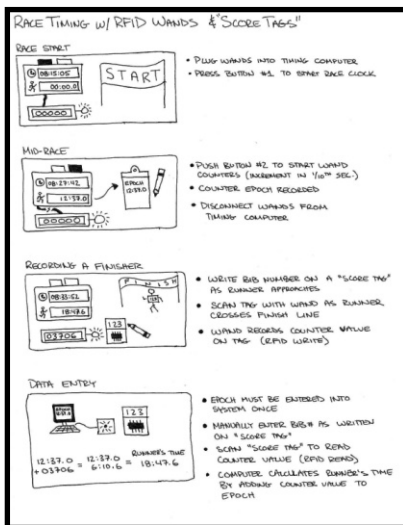 RACE TIMING W/ RFID WANDS & "SCORE TAGS"
RACE START
08:15:05
00:00.0
00000
START
• PLUG WANDS INTO TIMING COMPUTER
• PRESS BUTTON #1 TO START RACE CLOCK
MID-RACE
08:27:42
12:37.0
00000
EPOCH
12:37.0
• PUSH BUTTON #2 TO START WAND
COUNTERS (INCREMENT IN 1/10TH SEC.)
• COUNTER EPOCH RECORDED
• DISCONNECT WANDS FROM
TIMING COMPUTER
RECORDING A FINISHER
08:33:52
18:47.6
03706
FINISH
123
123
• WRITE BIB NUMBER ON A "SCORE TAG"
AS RUNNER APPROACHES
• SCAN TAG WITH WAND AS RUNNER
CROSSES FINISH LINE
• WAND RECORDS COUNTER VALUE
ON TAG (RFID WRITE)
DATA ENTRY
123
12:37.0
+03706
=
12:37.0
6:10.6
=
RUNNER'S TIME
18:47.6
• EPOCH MUST BE ENTERED INTO
SYSTEM ONCE
• MANUALLY ENTER BIB# AS WRITTEN
ON "SCORE TAG"
• SCAN "SCORE TAG" TO READ
COUNTER VALUE (RFID READ)
• COMPUTER CALCULATES RUNNER'S TIME
BY ADDING COUNTER VALUE TO
EPOCH